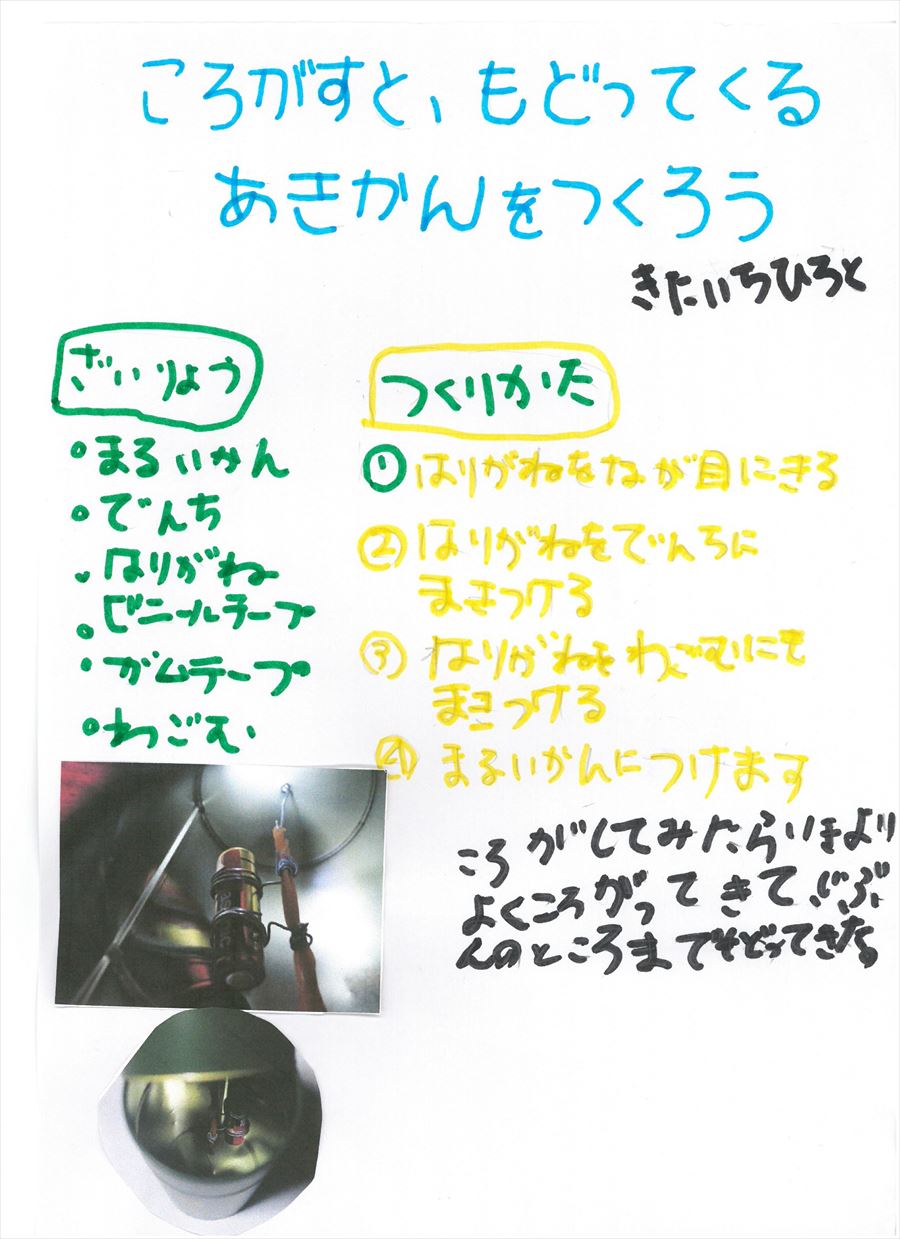 ころがすと、もどってくる
あきかんをつくろう
きたいちひろと
ざいりょう
・まるいかん
・でんち
・はりがね
・ビニールテープ
・ガムテープ
・わごむ
つくりかた
① はりがねをなが目にきる
② はりがねをでんちに
まきつける
③ はりがねをわごむにも
まきつける
④ まるいかんにつけます
ころがしてみたらいきより
よくころがってきてじぶ
んのところまでもどってきた